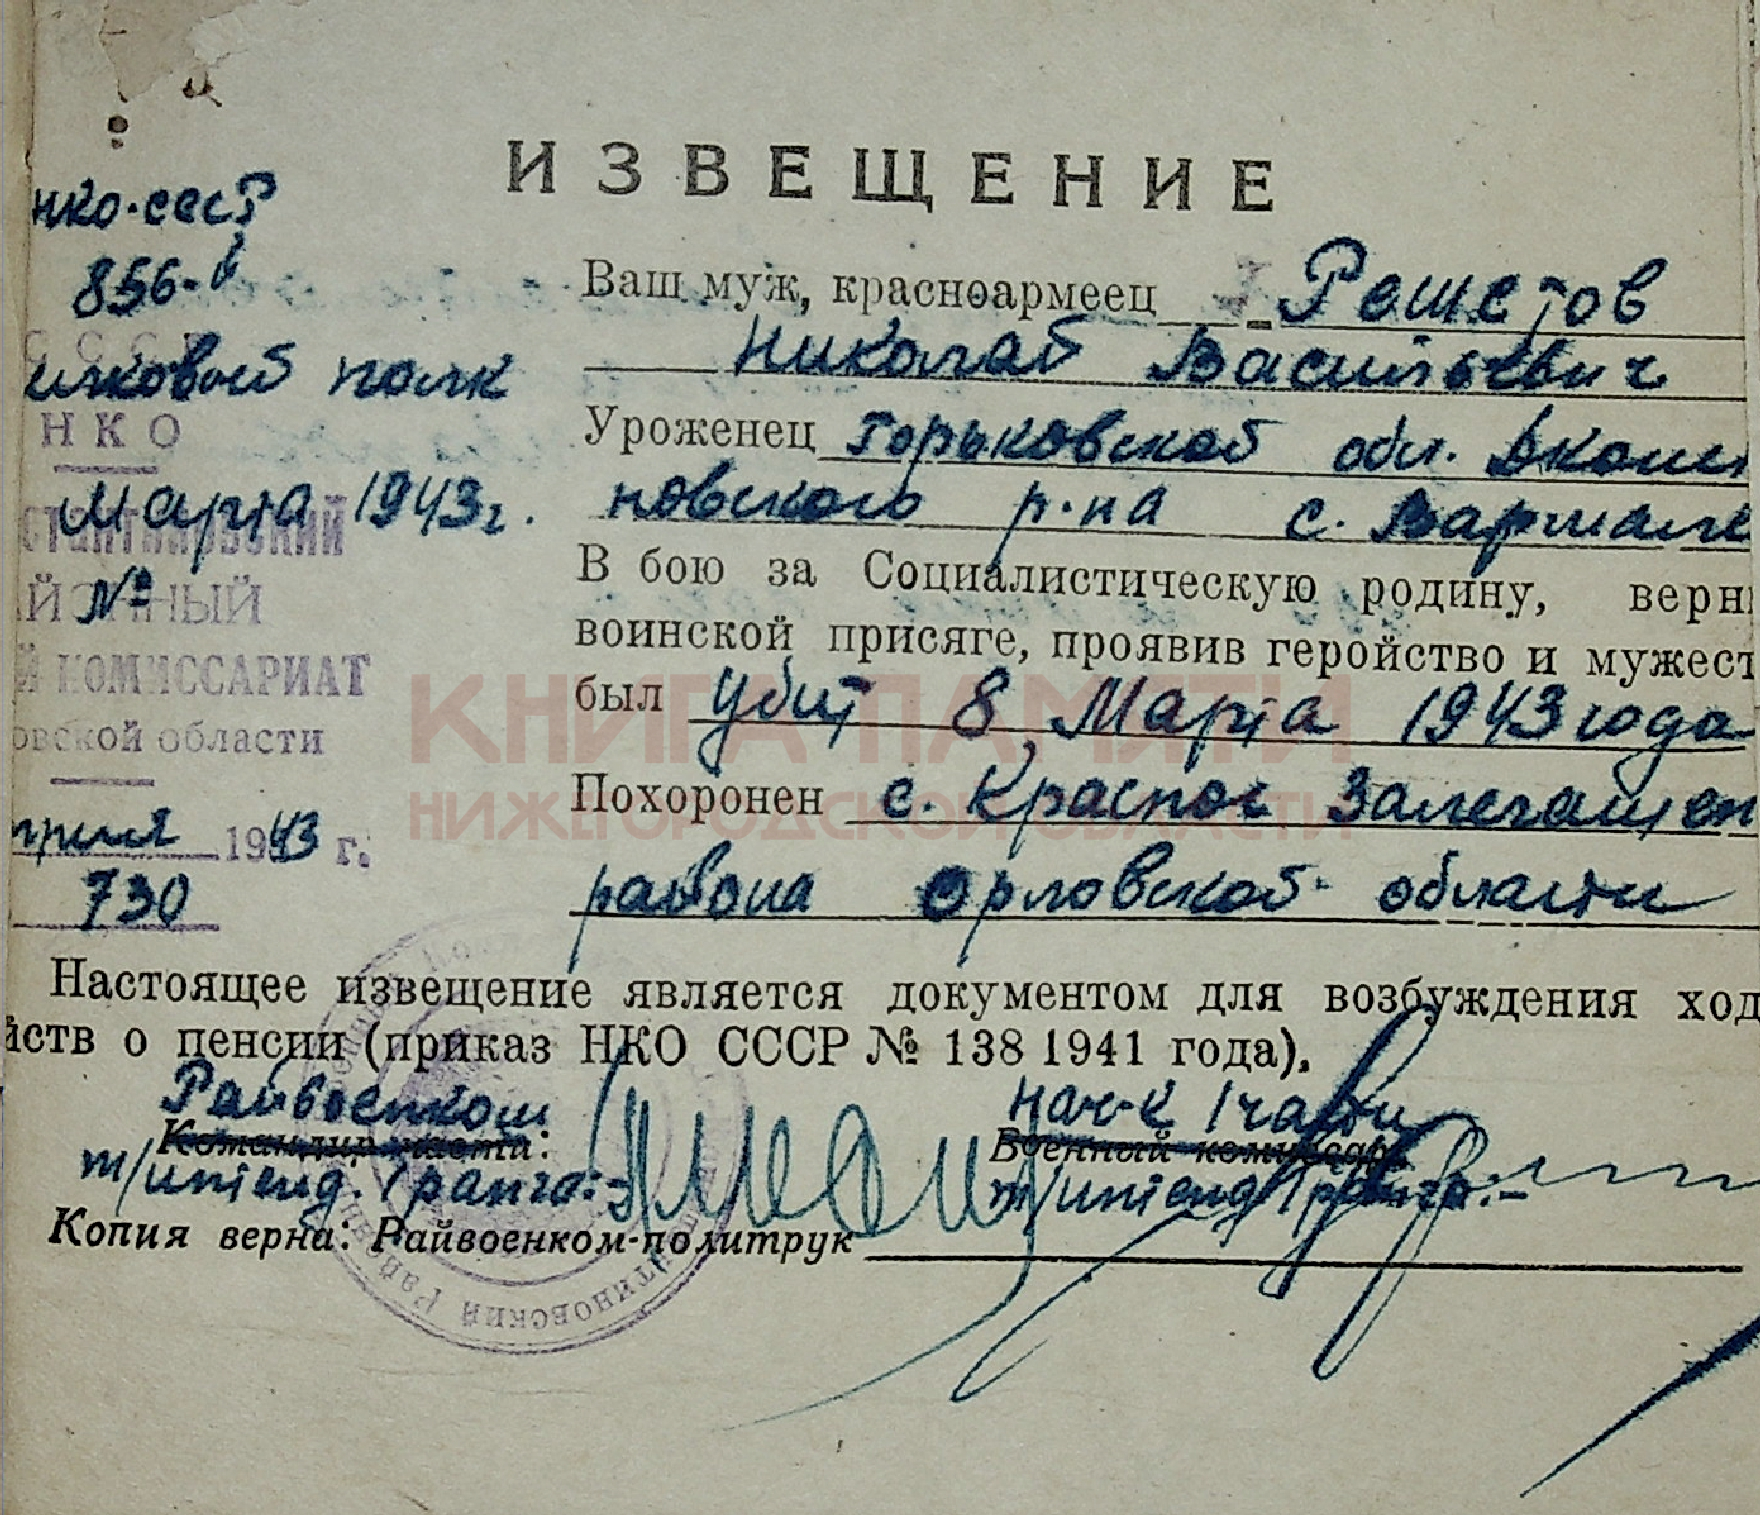 ИЗВЕЩЕНИЕ
НКО-СССР
856-й
СССР
лковой полк
НКО
Марта 1943г.
стантиновский
№
ЙОННЫЙ
Й КОМИССАРИАТ
овской области
преля 1943 г.
730
Ваш муж, красноармеец Решетов
Николай Васильевич
Уроженец Горьковской обл. Дконст
новского р-на с. Вармале
В бою за Социалистическую родину, верн
воинской присяге, проявив геройство и мужест
был убит 8 Марта 1943 года
Похоронен с. Красное Залегащен
района Орловской области
КНИГА ПАМЯТИ
НИЖЕГОРОДСКОЙ ОБЛАСТИ
Настоящее извещение является документом для возбуждения ход
йств о пенсии (приказ НКО СССР № 138 1941 года).
Райвоенком нач-к 1 части
Командир части: Военный комиссар
т/интенд. 1 ранга:- т/интенд 1 ранга:-
Копия верна: Райвоенком-политрук